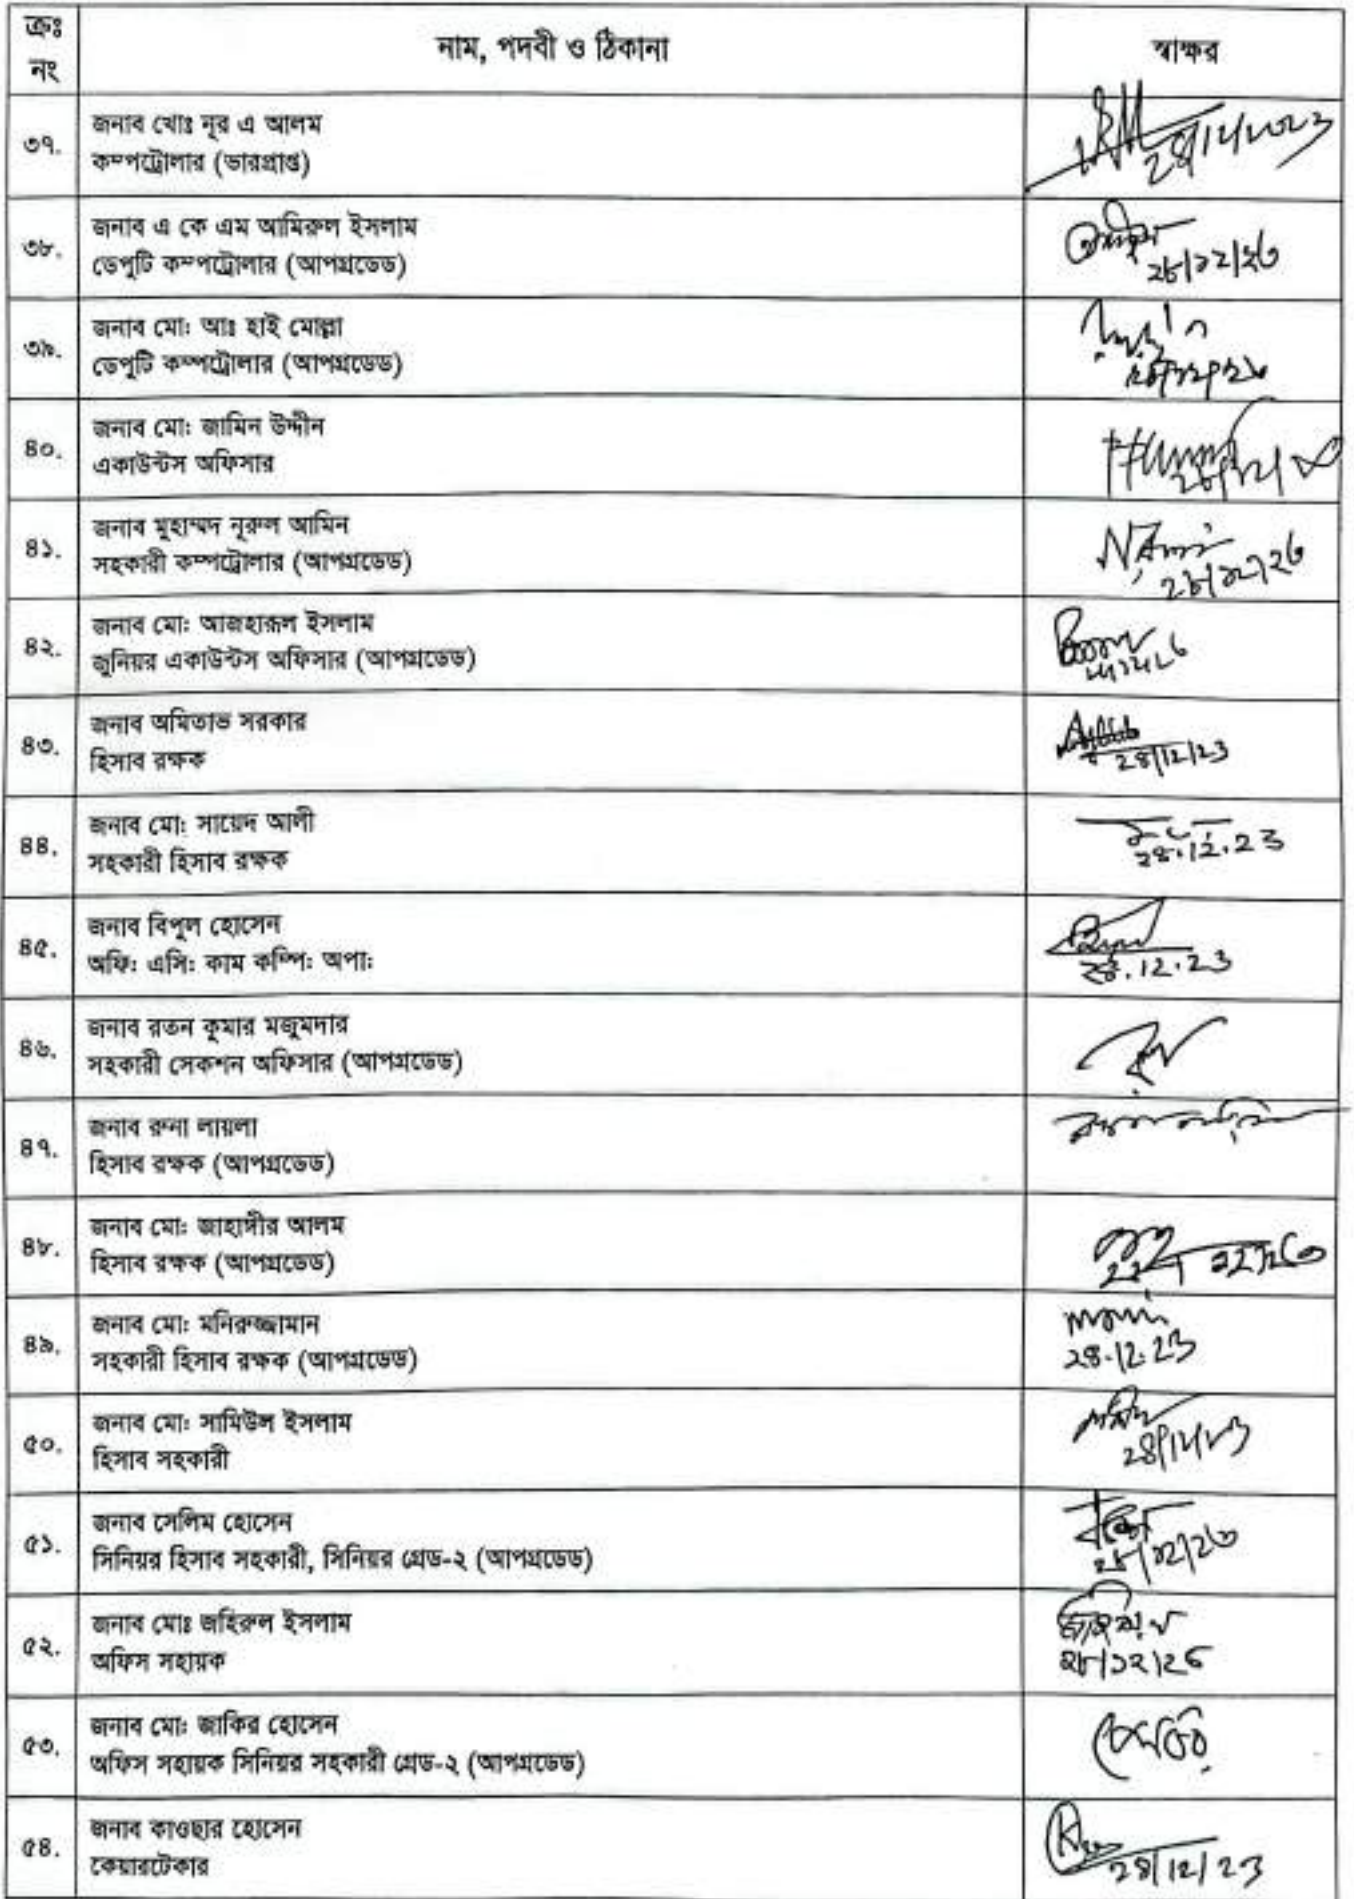 ক্রঃ
নং
নাম, পদবী ও ঠিকানা
স্বাক্ষর
৩৭.
জনাব খোঃ নূর এ আলম
কম্পট্রোলার (ভারপ্রাপ্ত)
৩৮.
জনাব এ কে এম আমিরুল ইসলাম
ডেপুটি কম্পট্রোলার (আপগ্রডেড)
২৮/১২/২৩
৩৯.
জনাব মো: আঃ হাই মোল্লা
ডেপুটি কম্পট্রোলার (আপগ্রডেড)
৪০.
জনাব মো: জামিন উদ্দীন
একাউন্টস অফিসার
৪১.
জনাব মুহাম্মদ নূরুল আমিন
সহকারী কম্পট্রোলার (আপগ্রডেড)
২৮/১২/২৩
৪২.
জনাব মো: আজহারূল ইসলাম
জুনিয়র একাউন্টস অফিসার (আপগ্রডেড)
৪৩.
জনাব অমিতাভ সরকার
হিসাব রক্ষক
28/12/23
৪৪.
জনাব মো: সায়েদ আলী
সহকারী হিসাব রক্ষক
28.12.23
৪৫.
জনাব বিপুল হোসেন
অফি: এসি: কাম কম্পি: অপা:
28.12.23
৪৬.
জনাব রতন কুমার মজুমদার
সহকারী সেকশন অফিসার (আপগ্রডেড)
৪৭.
জনাব রুনা লায়লা
হিসাব রক্ষক (আপগ্রডেড)
৪৮.
জনাব মো: জাহাঙ্গীর আলম
হিসাব রক্ষক (আপগ্রডেড)
৪৯.
জনাব মো: মনিরুজ্জামান
সহকারী হিসাব রক্ষক (আপগ্রডেড)
28.12.23
৫০.
জনাব মো: সামিউল ইসলাম
হিসাব সহকারী
28/12/23
৫১.
জনাব সেলিম হোসেন
সিনিয়র হিসাব সহকারী, সিনিয়র গ্রেড-২ (আপগ্রডেড)
২৮/১২/২৩
৫২.
জনাব মোঃ জহিরুল ইসলাম
অফিস সহায়ক
২৮/১২/২৩
৫৩.
জনাব মো: জাকির হোসেন
অফিস সহায়ক সিনিয়র সহকারী গ্রেড-২ (আপগ্রডেড)
৫৪.
জনাব কাওছার হোসেন
কেয়ারটেকার
28/12/23